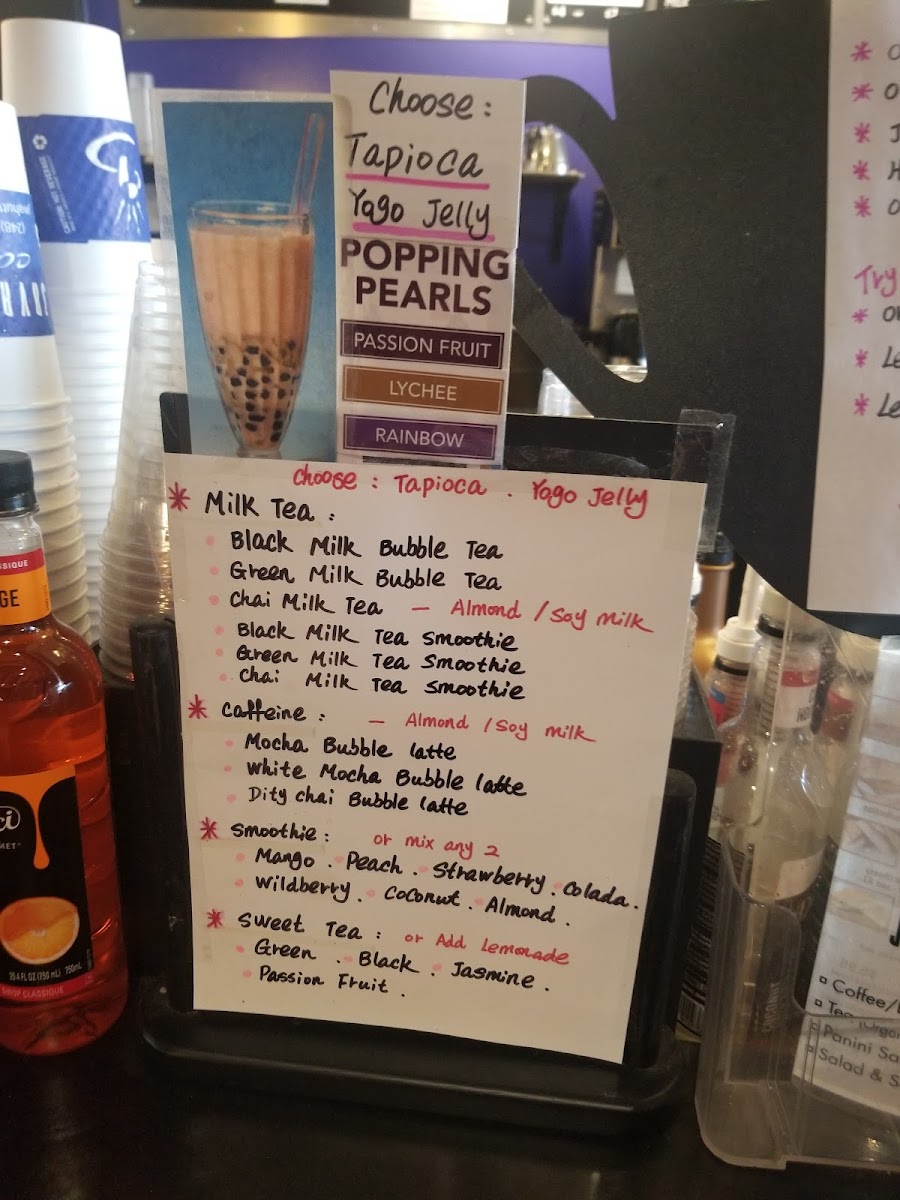 Choose:
Tapioca
Yago Jelly
POPPING
PEARLS
PASSION FRUIT
LYCHEE
RAINBOW
Choose : Tapioca . Yago Jelly
* Milk Tea :
Black Milk Bubble Tea
Green Milk Bubble Tea
Chai Milk Tea — Almond / Soy milk
Black Milk Tea Smoothie
Green Milk Tea Smoothie
Chai Milk Tea Smoothie
* Caffeine : — Almond / Soy milk
Mocha Bubble latte
White Mocha Bubble latte
Dity chai Bubble latte
* Smoothie : or mix any 2
Mango . Peach . Strawberry . Colada .
Wildberry . Coconut . Almond .
* Sweet Tea : or Add Lemonade
Green . Black . Jasmine .
Passion Fruit .
Try
Le
Le
GE
25.4 FL OZ (750 mL) 750mL
SIROP CLASSIQUE
Coffee/
Tea
Panini Sa
Salad & S